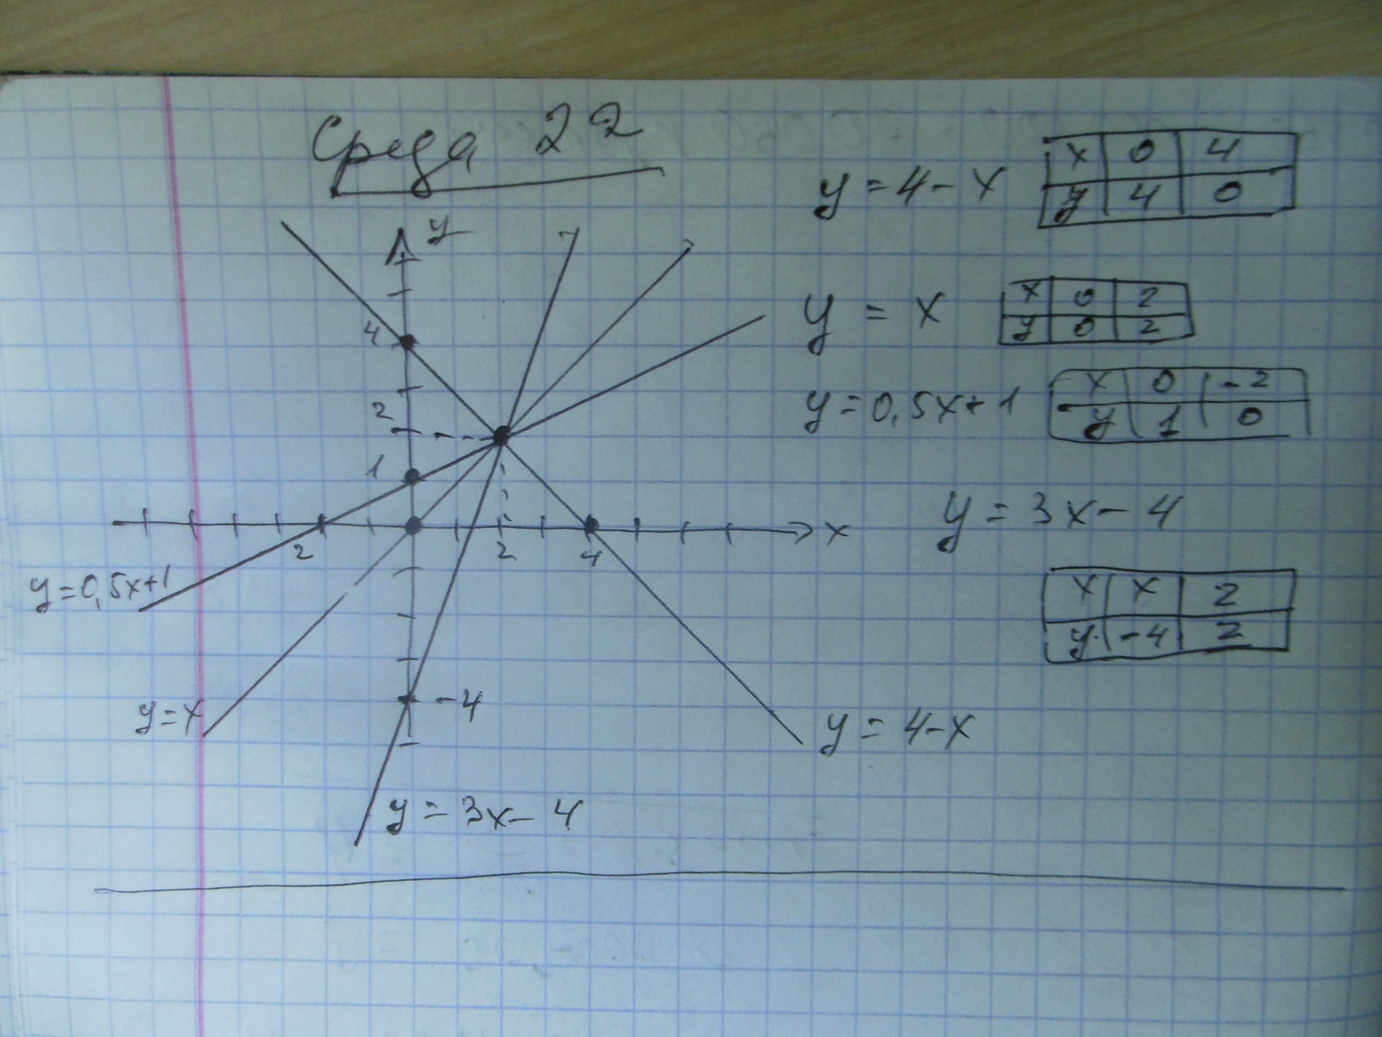 Среда 22
y = 4 - x
x 0 4
y 4 0
y = x
x 0 2
y 0 2
y = 0,5x + 1
x 0 -2
y 1 0
y = 3x - 4
x x 2
y -4 2
y
4
2
1
2 2 4 x
y = 0,5x+1
y = x
-4
y = 4-x
y = 3x - 4